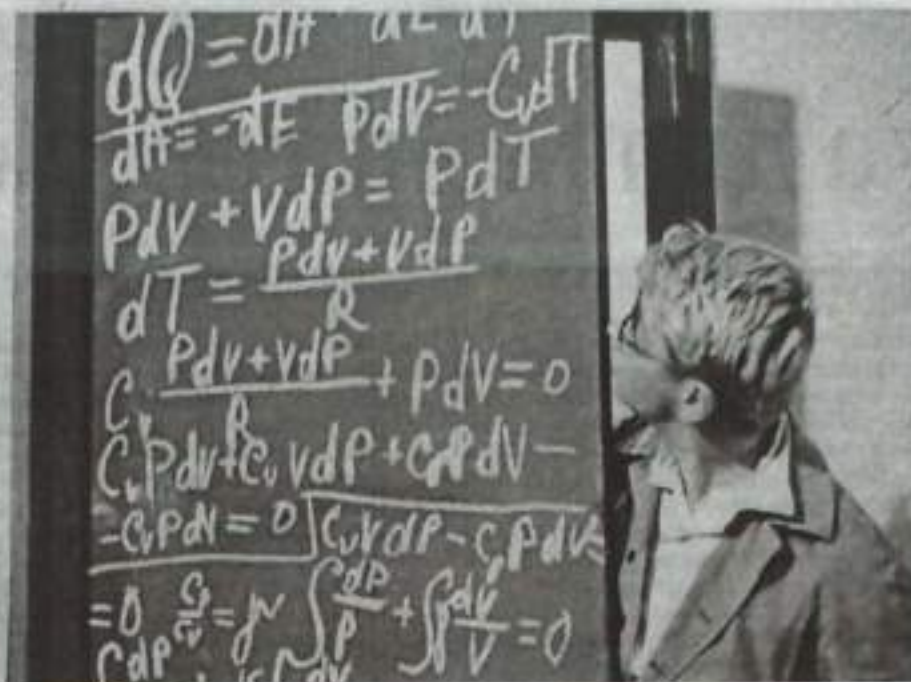 dQ = dA dE dT
dA = -dE PdV = -CvdT
PdV + VdP = PdT
dT = PdV + VdP / R
Cv PdV + VdP / R + PdV = 0
CvPdV + CvVdP + CpPdV -
- CvPdV = 0 CvVdP - CpPdV =
= 0 Cp/Cv = γ ∫ dP/P + ∫ γ dV/V = 0
∫dP